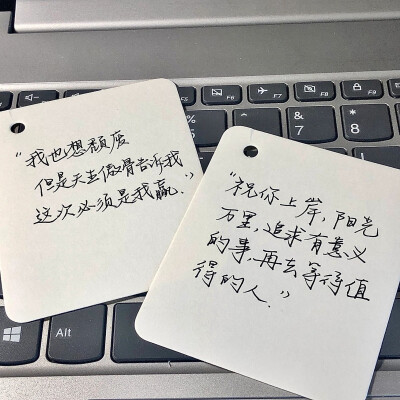 "我也想颓废
但是天生傲骨告诉我
这次必须是我赢."
"祝你上岸,阳光
万里,追求有意义
的事,再去等待值
得的人."
F5
F6
F7
F8
F9
&
7
*
8
Alt